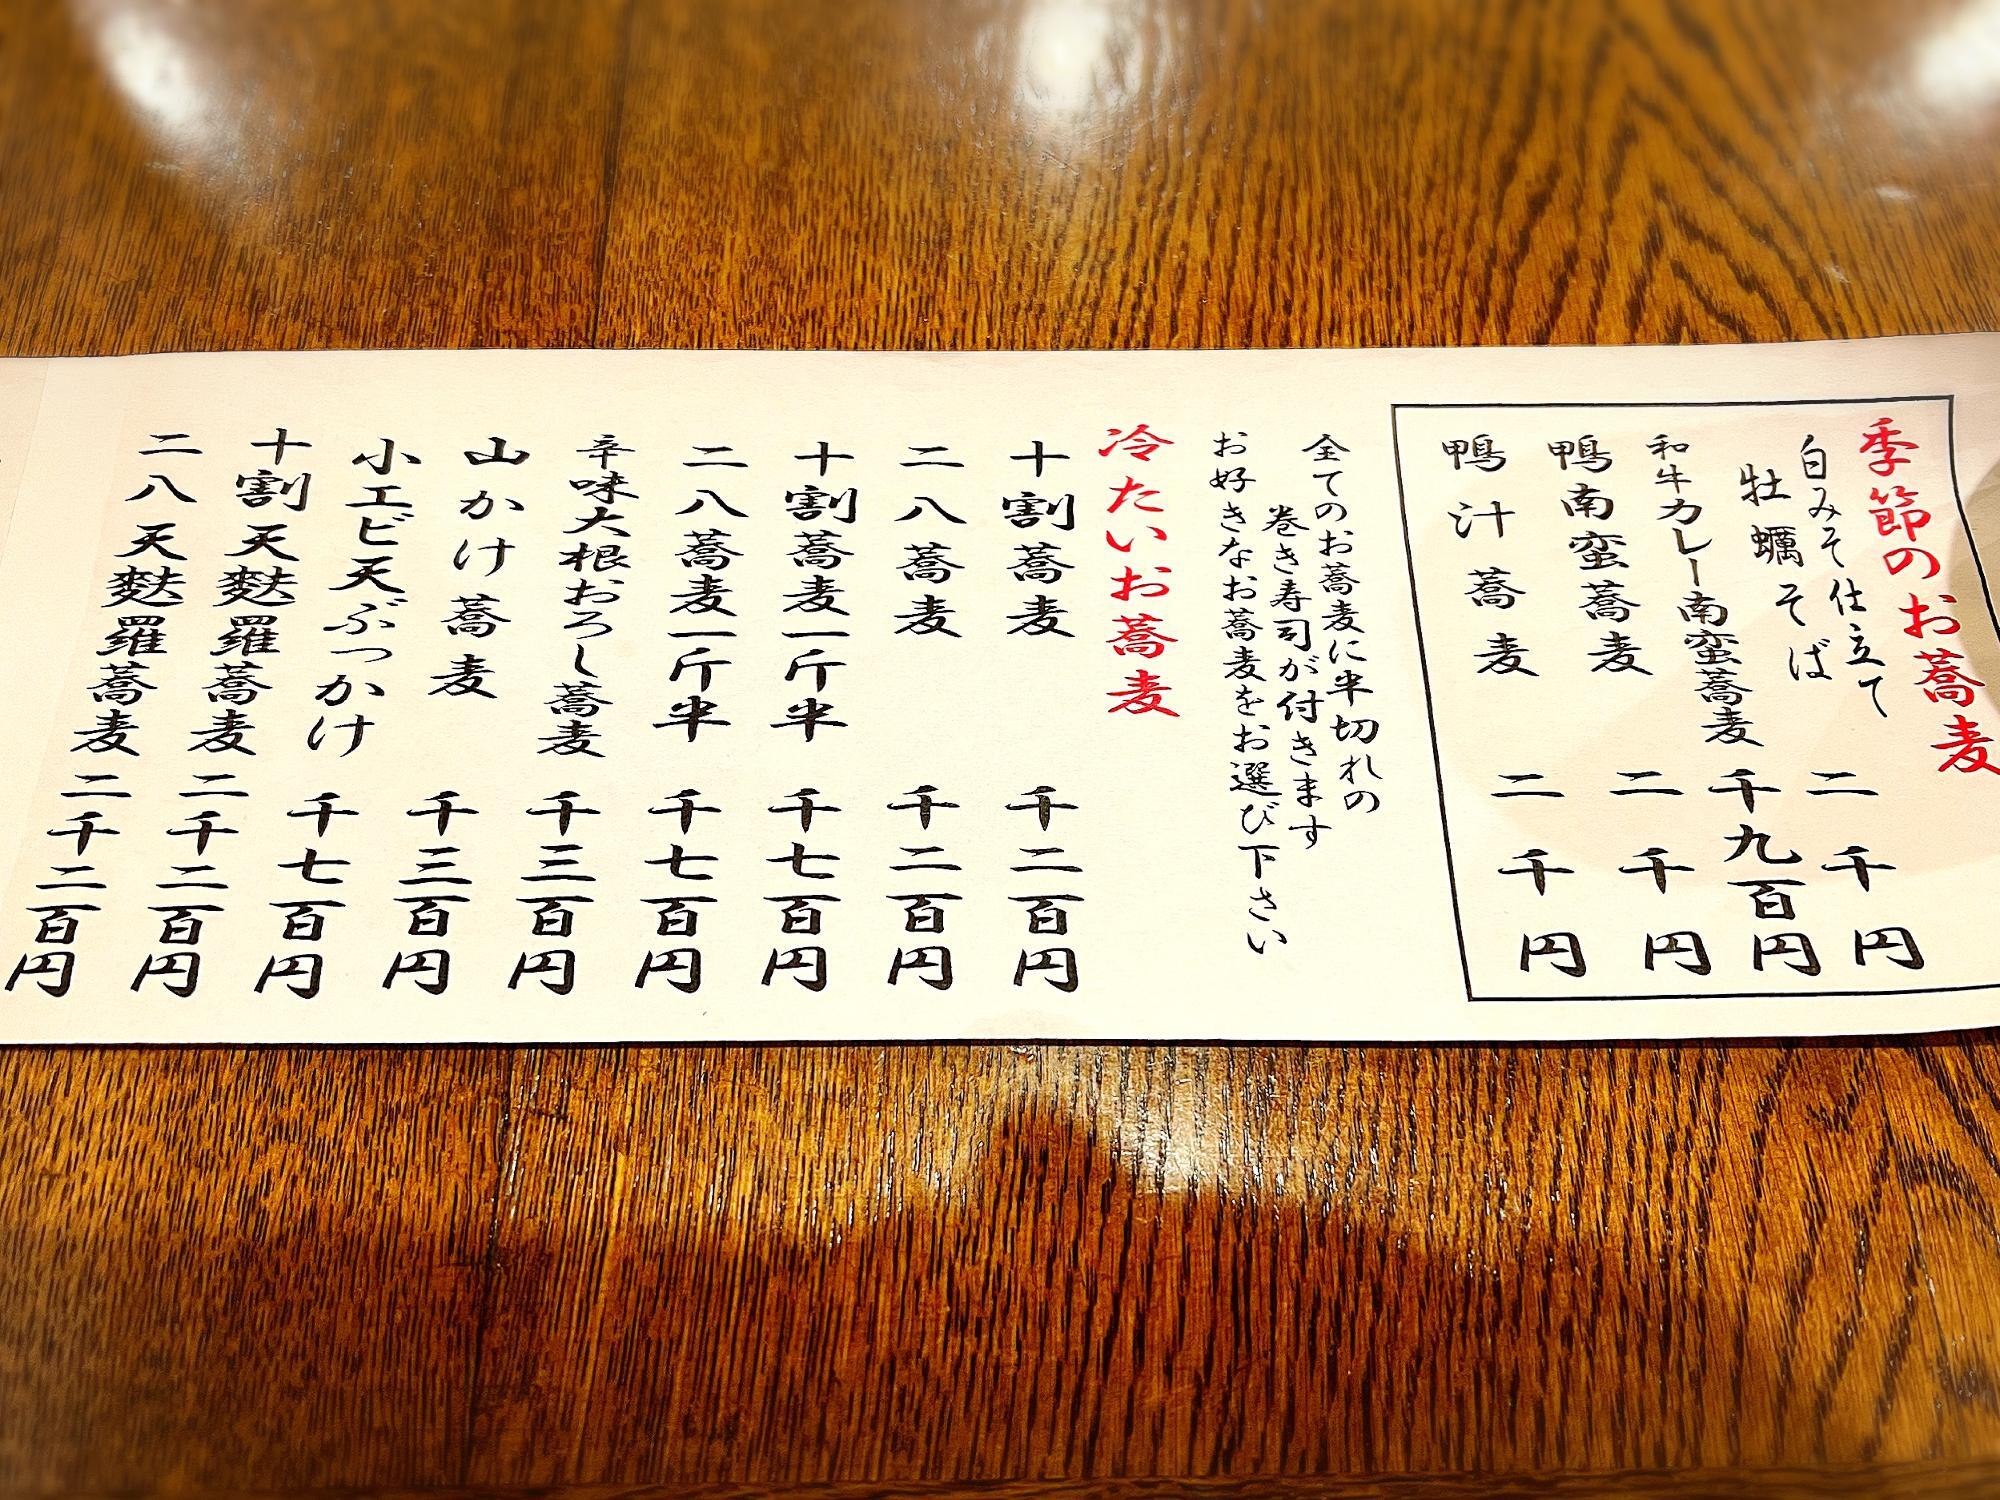 季節のお蕎麦
白みそ仕立て
牡蠣そば 二千円
和牛カレー南蛮蕎麦 千九百円
鴨南蛮蕎麦 二千円
鴨汁蕎麦 二千円
全てのお蕎麦に半切れの
巻き寿司が付きます
お好きなお蕎麦をお選び下さい
冷たいお蕎麦
十割蕎麦 千二百円
二八蕎麦 千二百円
十割蕎麦一斤半 千七百円
二八蕎麦一斤半 千七百円
辛味大根おろし蕎麦 千三百円
山かけ蕎麦 千三百円
小エビ天ぶっかけ 千七百円
十割天麩羅蕎麦 二千二百円
二八天麩羅蕎麦 二千二百円